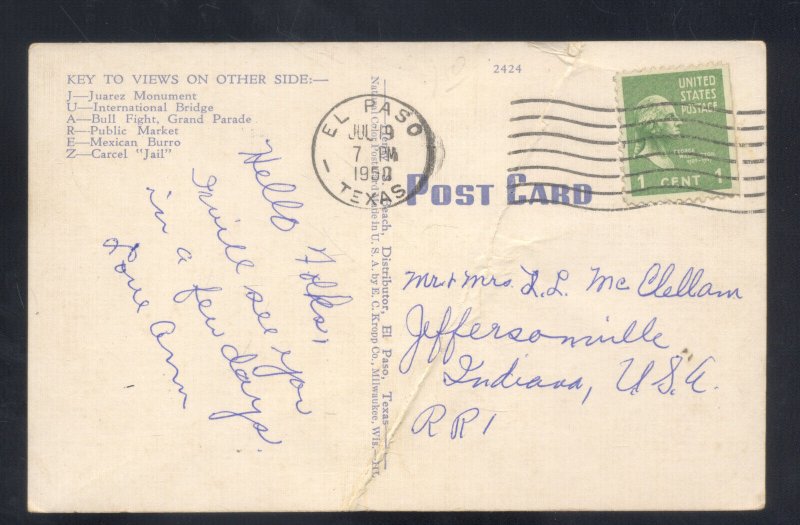 KEY TO VIEWS ON OTHER SIDE:—
J—Juarez Monument
U—International Bridge
A—Bull Fight, Grand Parade
R—Public Market
E—Mexican Burro
Z—Carcel "Jail"
Hello Folks,
I will see you
in a few days.
Love Ann
Distributor, El Paso, Texas
National Color Postcard Made in U. S. A. by E. C. Kropp Co., Milwaukee, Wis.
2424
EL PASO
JUL 9
7 PM
1950
TEXAS
POST CARD
UNITED
STATES
POSTAGE
GEORGE
WASHINGTON
1 CENT 1
Mr + Mrs. L. L. McClellam
Jeffersonville
Indiana, U.S.A.
RR1